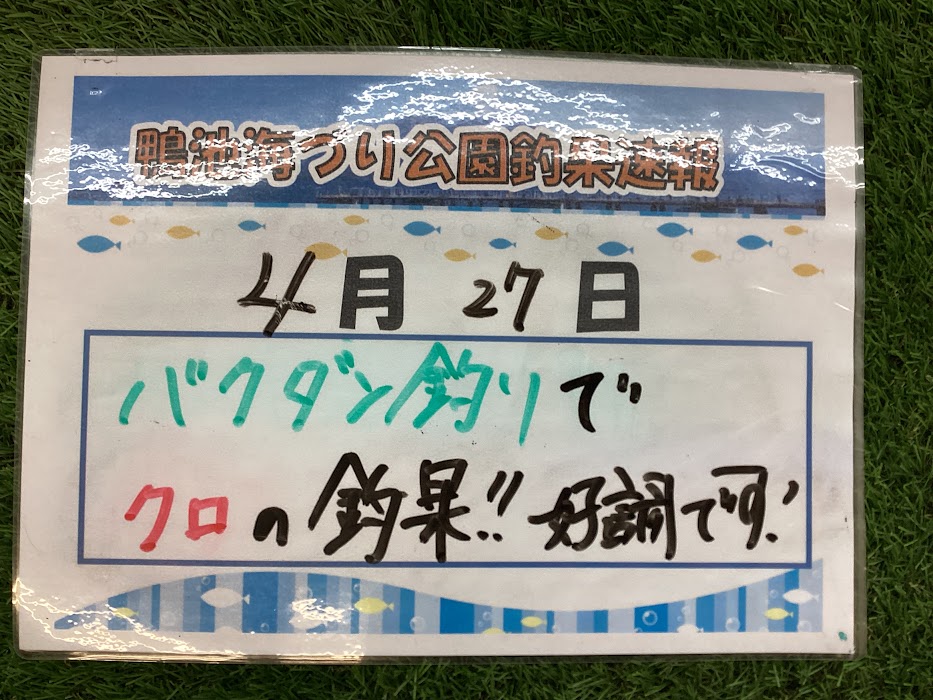 鴨池海づり公園釣果速報
4月27日
バクダン釣りで
クロの釣果!!好調です!